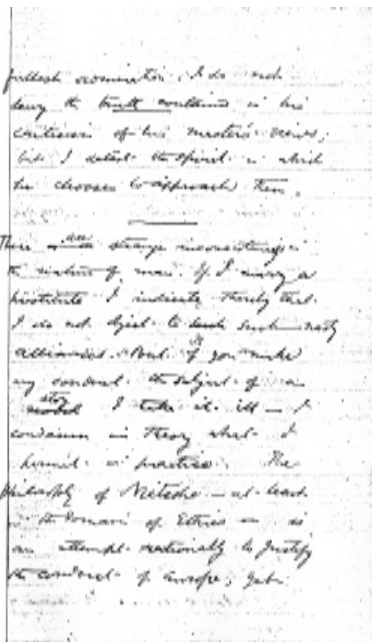 fullest examination. I do not
deny the truth contained in his
criticism of his master's views;
but I detest the spirit in which
he chooses to approach them.
There are strange inconsistencies in
the nature of man. If I marry a
prostitute I indicate thereby that
I do not object to such nasty
alliances. But if you make
my conduct the subject of a
story I take it ill — I
condemn in theory what I
permit in practice. The
philosophy of Nietsche — at least
in the domain of Ethics — is
an attempt rationally to justify
the conduct of Europe; yet